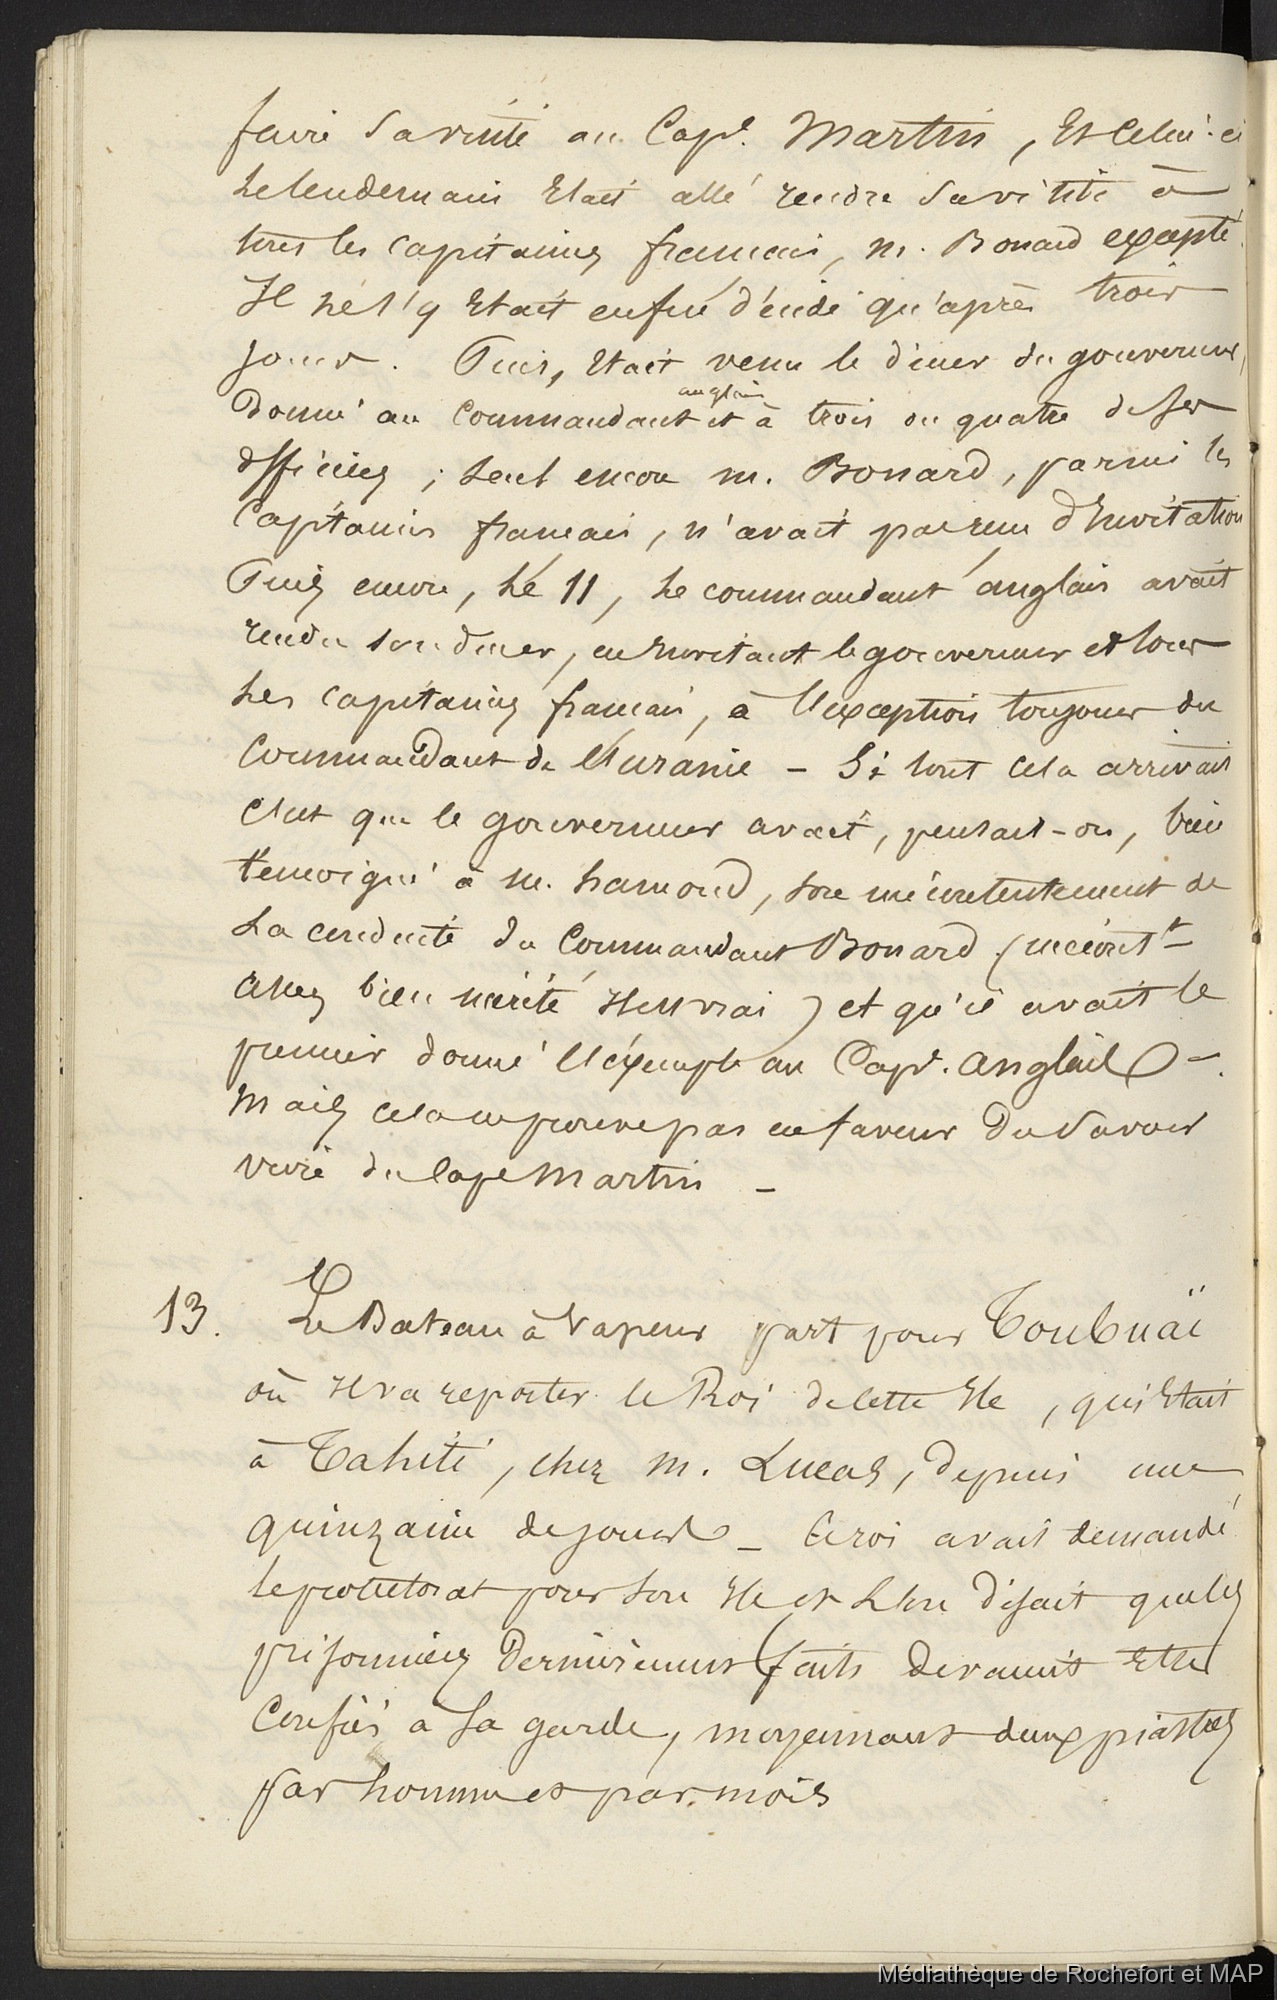 faire sa visite au Cap.e Martin, et celui-ci
le lendemain était allé rendre sa visite à
tous les capitaines français, M. Bonard excepté.
Il ne s'y était enfin décidé qu'après trois
jours. Puis, était venu le diner du gouverneur,
donné au commandant anglais et à trois ou quatre de ses
officiers ; seul encore M. Bonard, parmi les
Capitaines français, n'avait pas reçu d'invitation
Puis encore, le 11, le commandant anglais avait
rendu son diner, en invitant le gouverneur et tous
les capitaines français, à l'exception toujours du
Commandant de l'Uranie - Si tout cela arrivait
c'est que le gouverneur avait, pensait-on, bien
témoigné à M. hamond, son mécontentement de
la conduite du Commandant Bonard (mécont.t
assez bien mérité il est vrai) et qu'il avait le
premier donné l'éxemple au Cap.e anglais -.
Mais cela ne prouve pas en faveur du savoir
vivre du Cap.e Martin -
13. Le Bateau à vapeur part pour Toubuaï
où il va reporter le Roi de cette île, qui était
à Tahiti, chez M. Lucas, depuis une
quinzaine de jours - Ce roi avait demandé
le protectorat pour son île et l'on disait que les
prisonniers dernièrement faits devaient être
confiés à sa garde, moyennant deux piastres
par homme et par mois
Médiathèque de Rochefort et MAP